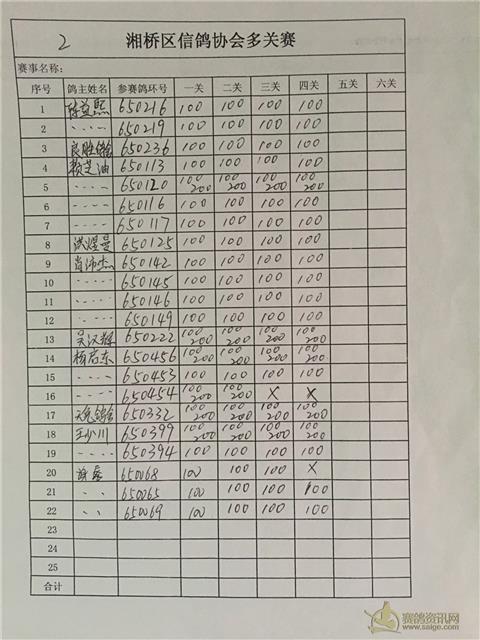 2 湘桥区信鸽协会多关赛
赛事名称：
序号 鸽主姓名 参赛鸽环号 一关 二关 三关 四关 五关 六关
1 650216 100 100 100 100
2 〃 650219 100 100 100 100
3 650236 100 100 100 100
4 650113 100 100 100 100
5 〃 650120 100 200 100 200 100 200 100 200
6 〃 650116 100 100 100 100
7 〃 650117 100 100 100 100
8 洪煜曼 650125 100 100 100 100
9 肖沛杰 650142 100 100 100 100
10 〃 650145 100 100 100 100
11 〃 650146 100 100 100 100
12 〃 650149 100 100 100 100
13 吴汉辉 650222 100 200 100 200 100 200 100 200
14 650456 100 200 100 200 100 200 100 200
15 〃 650453 100 100 100 100
16 〃 650454 100 200 100 200 X X
17 650332 100 200 100 200 100 200 100 200
18 王少川 650399 100 200 100 200 100 200 100 200
19 〃 650394 100 100 100 100
20 650068 100 100 100 X
21 〃 650065 100 100 100 100
22 〃 650069 100 100 100 100
23
24
25
合计
赛鸽资讯网
www.saige.com